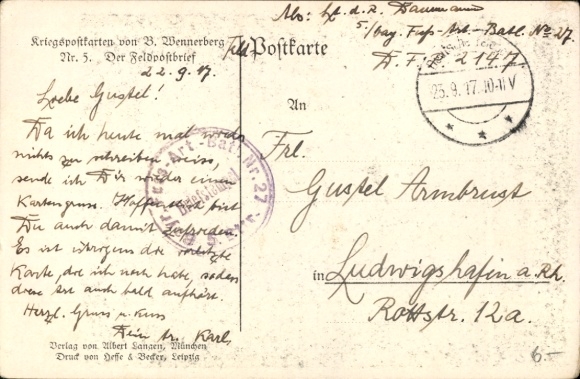 Abs: Lt. d. R. Baumann
5./bay. Fuss-Art.-Batl. No 27.
Kriegspostkarten von B. Wennerberg
Nr. 5. Der Feldpostbrief
Feld Postkarte
D. F. 2147
22.9.17.
23.9.17.10-11V
Liebe Gustel!
An
Da ich heute mal wieder
nichts zu schreiben weiss,
sende ich Dir wieder einen
Kartengruss. Hoffentlich bist
Du auch damit zufrieden.
Es ist übrigens die letzte
Karte, die ich noch habe, sodass
diese Art auch bald aufhört.
Herzl. Gruss u. Kuss
Dein tr. Karl.
Art.-Batl. Nr. 27
Briefstempel
Frl.
Gustel Armbrust
in Ludwigshafin a. Rh.
Rottstr. 12a.
Verlag von Albert Langen, München
Druck von Hesse & Becker, Leipzig
6.-